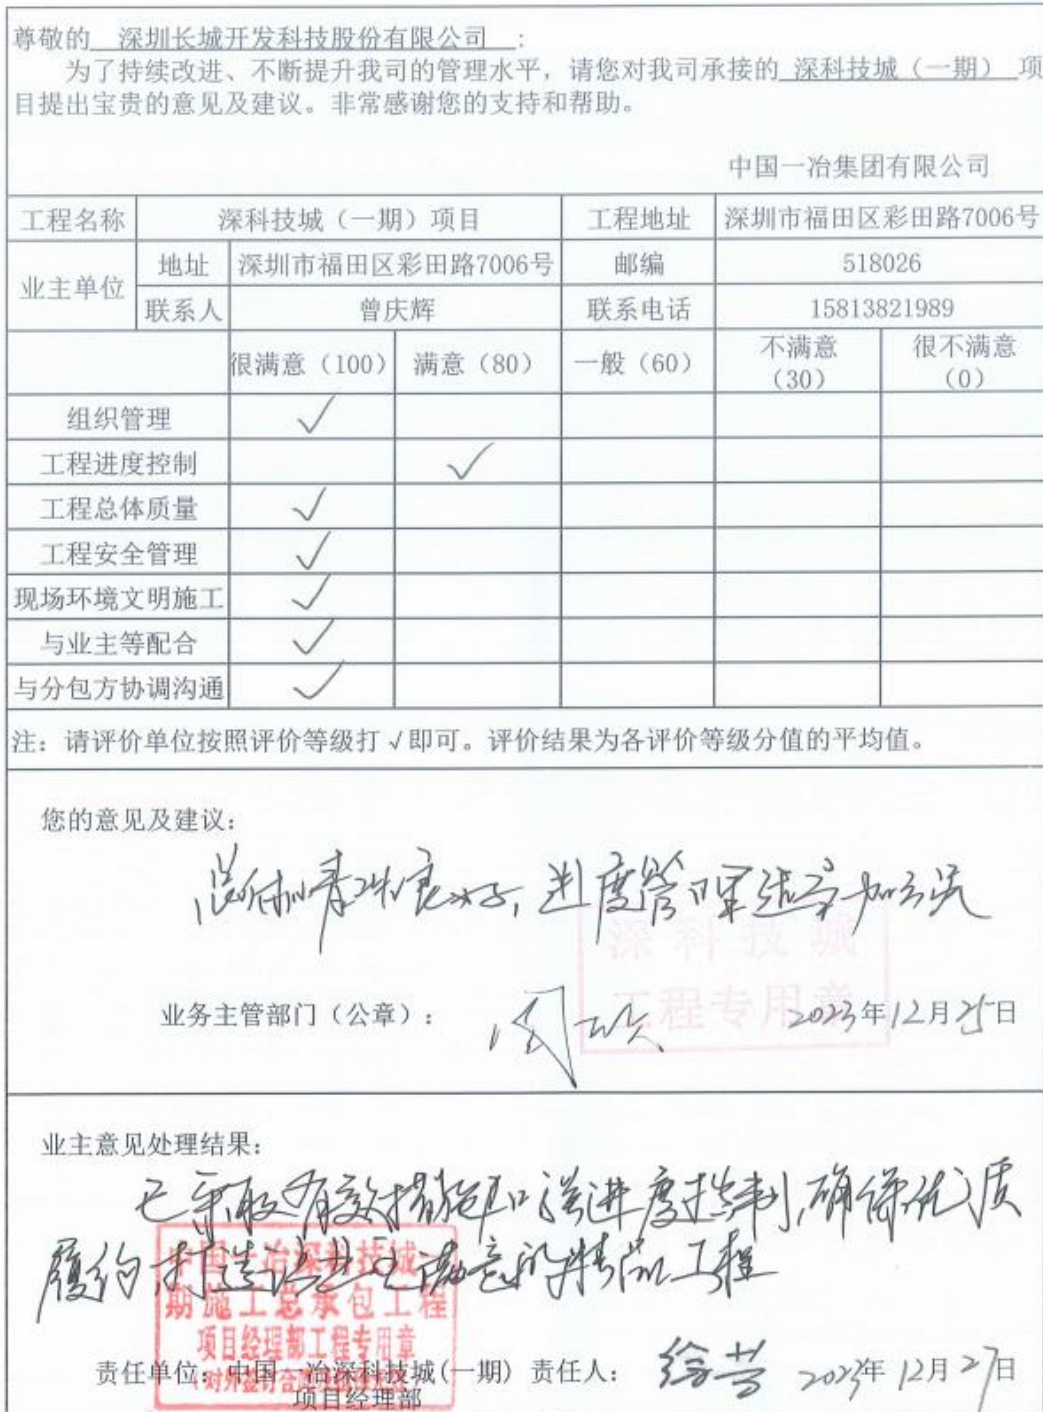 尊敬的 深圳长城开发科技股份有限公司 :
为了持续改进、不断提升我司的管理水平，请您对我司承接的 深科技城（一期） 项
目提出宝贵的意见及建议。非常感谢您的支持和帮助。
中国一冶集团有限公司
工程名称 深科技城（一期）项目 工程地址 深圳市福田区彩田路7006号
业主单位 地址 深圳市福田区彩田路7006号 邮编 518026
联系人 曾庆辉 联系电话 15813821989
很满意（100） 满意（80） 一般（60） 不满意（30） 很不满意（0）
组织管理 ✓
工程进度控制 ✓
工程总体质量 ✓
工程安全管理 ✓
现场环境文明施工 ✓
与业主等配合 ✓
与分包方协调沟通 ✓
注：请评价单位按照评价等级打√即可。评价结果为各评价等级分值的平均值。
您的意见及建议：
总体 良好，进度管理 加
深科技城
工程专用章
业务主管部门（公章）： 2023年12月25日
业主意见处理结果：
已采取有效措施加强进度控制，确保优质
履约，打造让业主满意的精品工程
中国一冶深科技城一
期施工总承包工程
项目经理部工程专用章
责任单位：中国一冶深科技城(一期) 责任人： 2023年12月27日
项目经理部